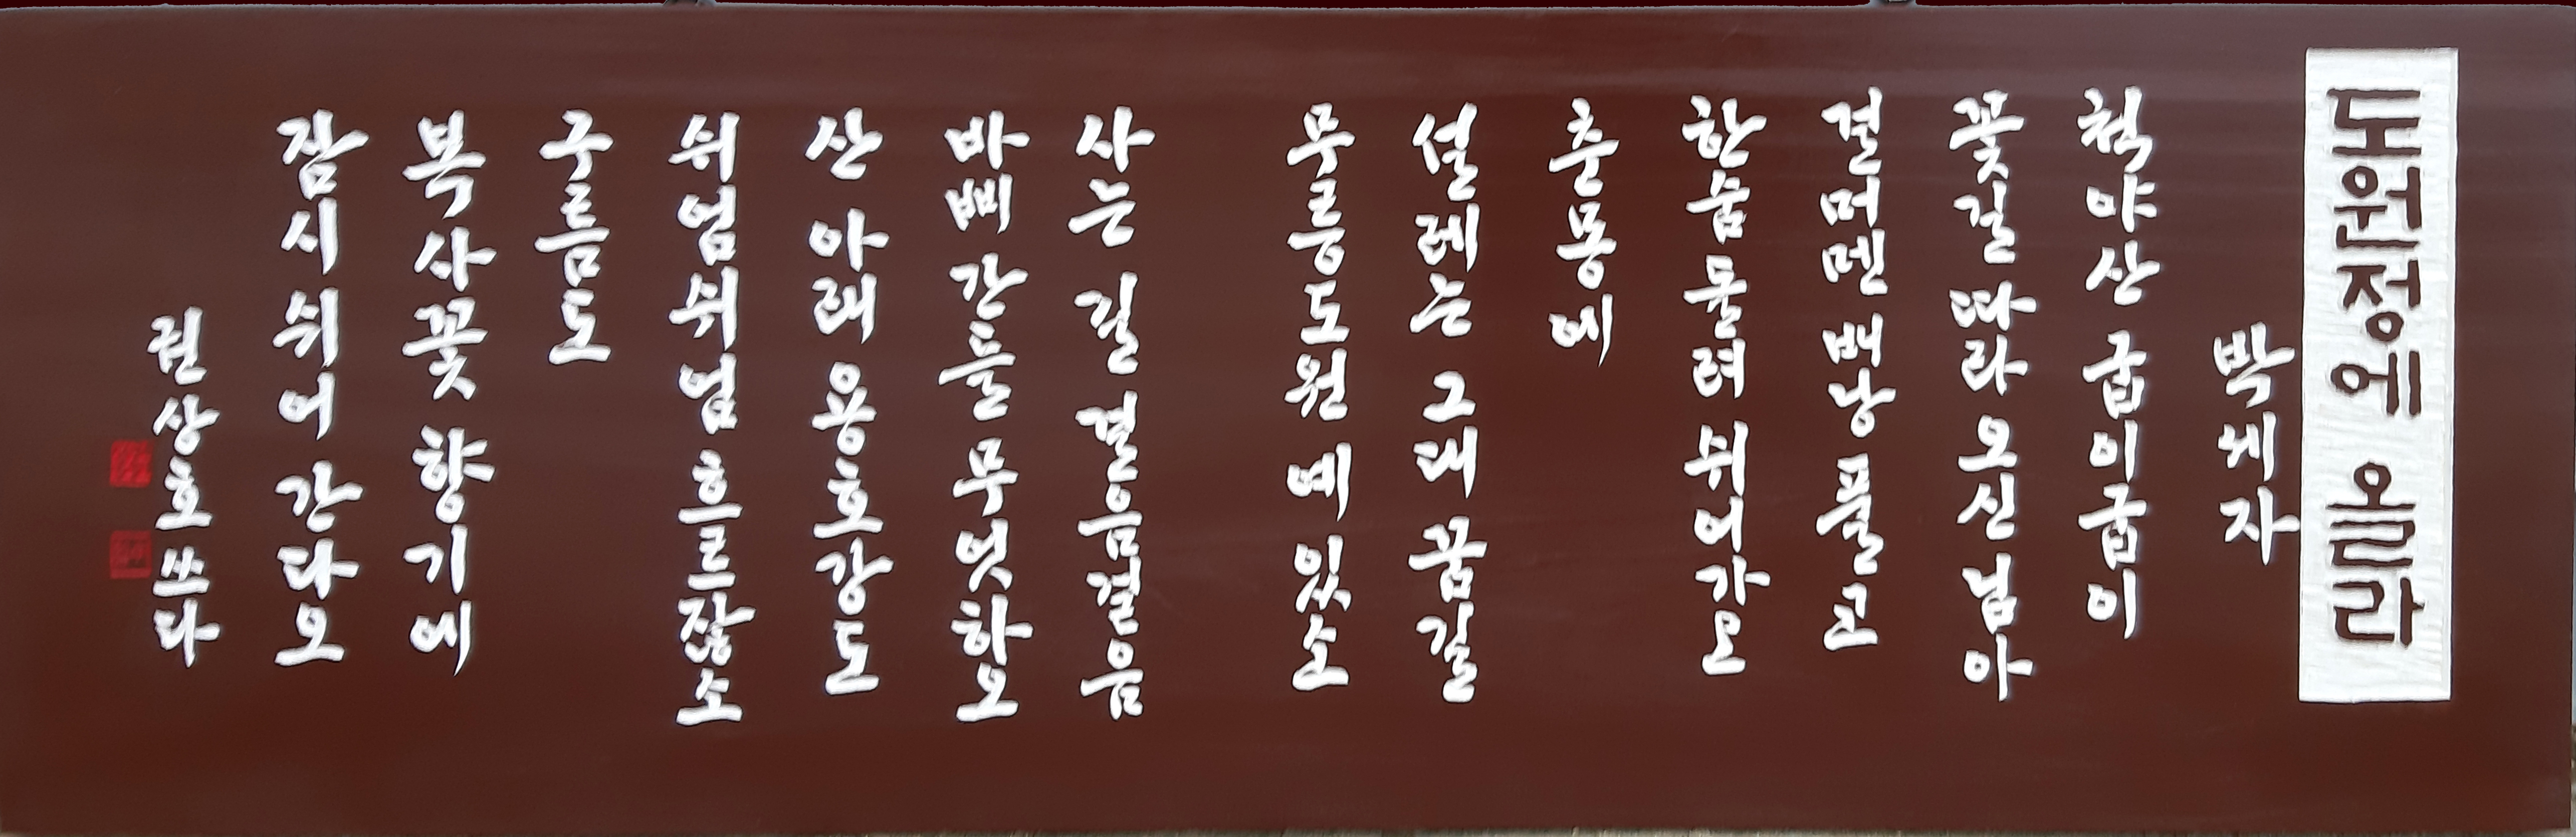 도원정에 오를라
박세자
척야산 굽이굽이
꽃길 따라 오신 님아
걸머멘 배낭 풀고
한숨 돌려 쉬어가오
춘몽에
설레는 그대 꿈길
무릉도원 예 있소
사는 길 걸음걸음
바삐 간들 무엇하오
산 아래 용호강도
쉬엄쉬엄 흐르잖소
구름도
복사꽃 향기에
잠시 쉬어 간다오
권상호 쓰다